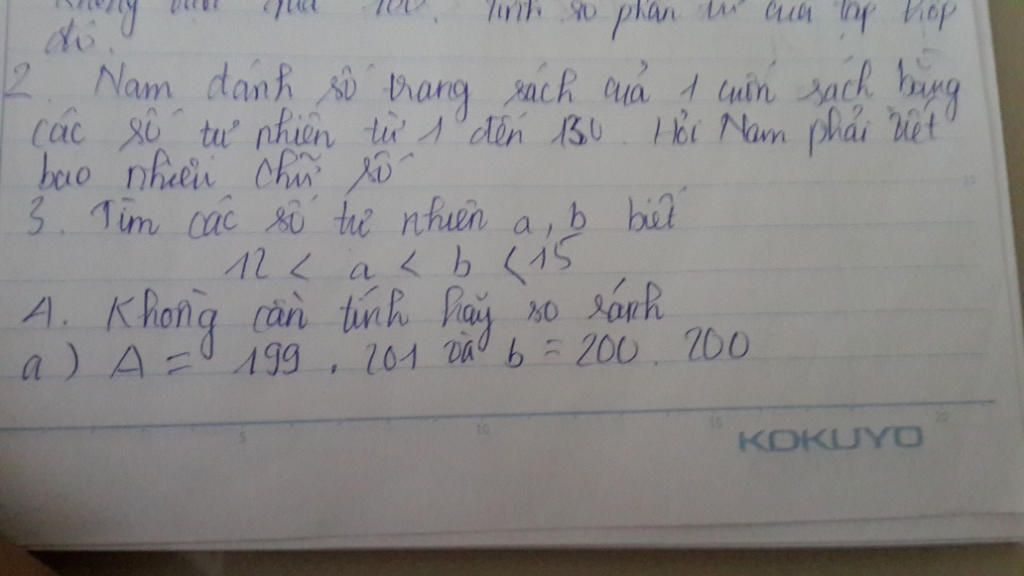 không vượt quá 100. Tính số phần tử của tập hợp
đó.
2. Nam đánh số trang sách của 1 cuốn sách bằng
các số tự nhiên từ 1 đến 130. Hỏi Nam phải viết
bao nhiêu chữ số
3. Tìm các số tự nhiên a, b biết
12 < a < b < 15
A. Không cần tính hãy so sánh
a) A = 199 . 201 và b = 200 . 200
5 10 15 20
KOKUYO